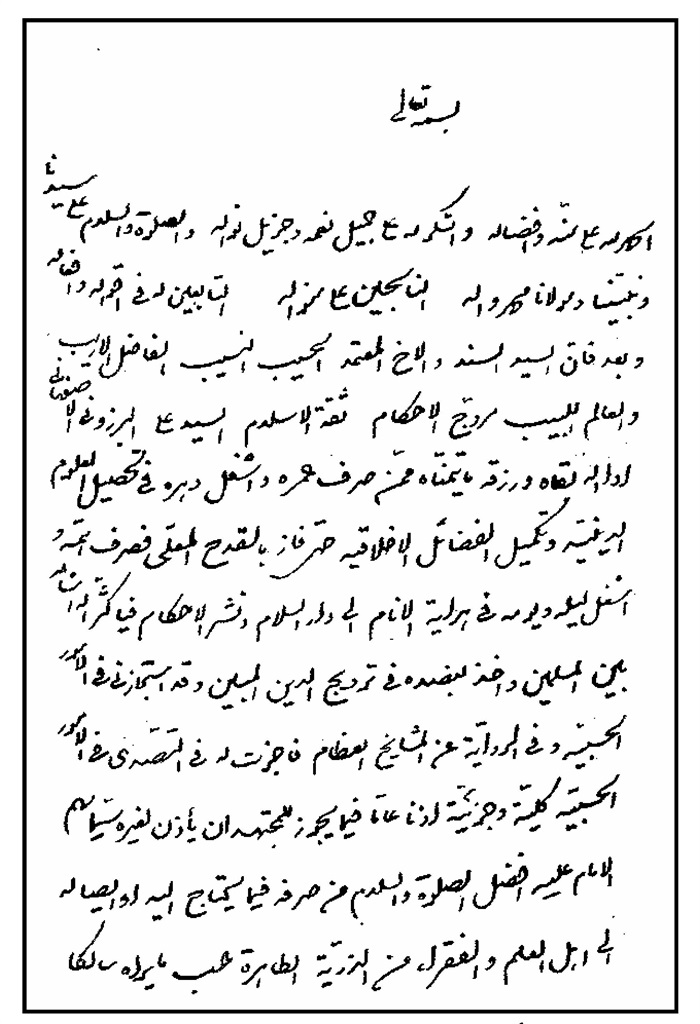 بسمه تعالی
الحمد لله علی منّه وافضاله والشکر له علی جمیل نعمه وجزیل نواله والصلوة والسلام علی سیدنا
ونبیّنا ومولانا محمد واله الناسجین علی منواله التابعین له فی اقواله وافعاله
وبعد فان السید السند والاخ المعتمد الحسیب النسیب الفاضل الاریب
والعالم اللبیب مروّج الاحکام ثقة الاسلام السید علی البرزونی الاصفهانی
ادام الله بقاه ورزقه مایتمنّاه ممّن صرف عمره واشغل دهره فی تحصیل العلوم
الدینیّة وتکمیل الفضائل الاخلاقیه حتی فاز بالقدح المعلّی فصرف همّه و
اشغل لیله ویومه فی هدایة الانام الی دار السلام ونشر الاحکام فیا کثّر الله امثاله
بین المسلمین واخذ بعضده فی ترویج الدین المبین وقد استجازنی فی الامور
الحسبیّه وفی الروایة عن المشایخ العظام فاجزت له فی التصدی فی الامور
الحسبیّه کلیّة وجزئیّة اذنا عاما فیما یجوز للمجتهد ان یأذن لغیره سیّما سهم
الامام علیه افضل الصلوة والسلام من صرفه فیما یحتاج الیه او ایصاله
الی اهل العلم والفقراء من الذریّة الطاهرة حسب مایراه سالکا